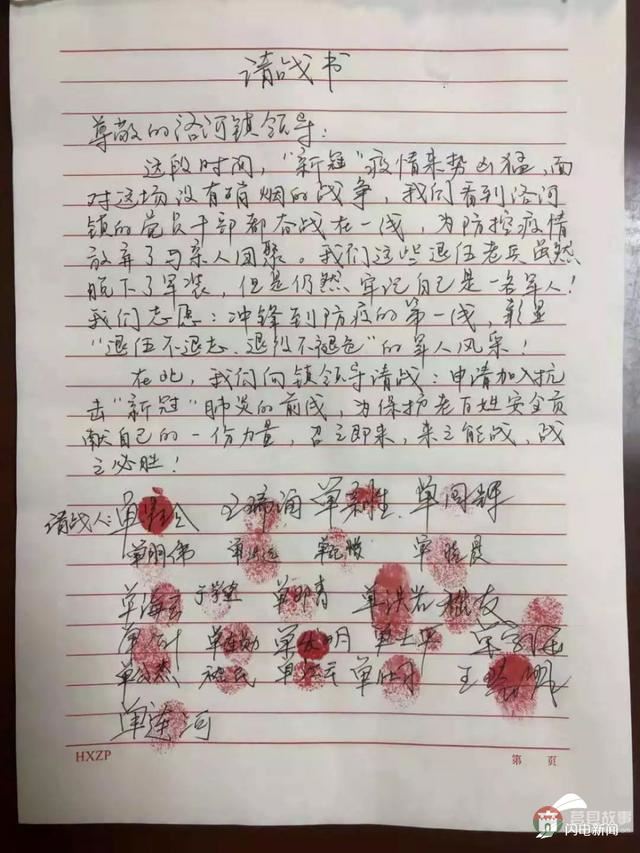 请战书
尊敬的洛河镇领导：
这段时间，“新冠”疫情来势凶猛，面
对这场没有硝烟的战争，我们看到洛河
镇的党员干部都奋战在一线，为防控疫情
放弃了与亲人团聚。我们这些退伍老兵虽然
脱下了军装，但是仍然牢记自己是一名军人！
我们志愿：冲锋到防疫的第一线，彰显
“退伍不退志、退役不褪色”的军人风采！
在此，我们向镇领导请战：申请加入抗
击“新冠”肺炎的前线，为保护老百姓安全贡
献自己的一份力量，召之即来，来之能战，战
之必胜！
请战人：单 王瑞涌 单 单阎辉
单明伟 单 单 单晓晨
单海云 于学建 单即青 单洪岩
单 单 单 单士平 宋
单 单 单 王
单连河
HXZP
第 页
莒县故事
闪电新闻